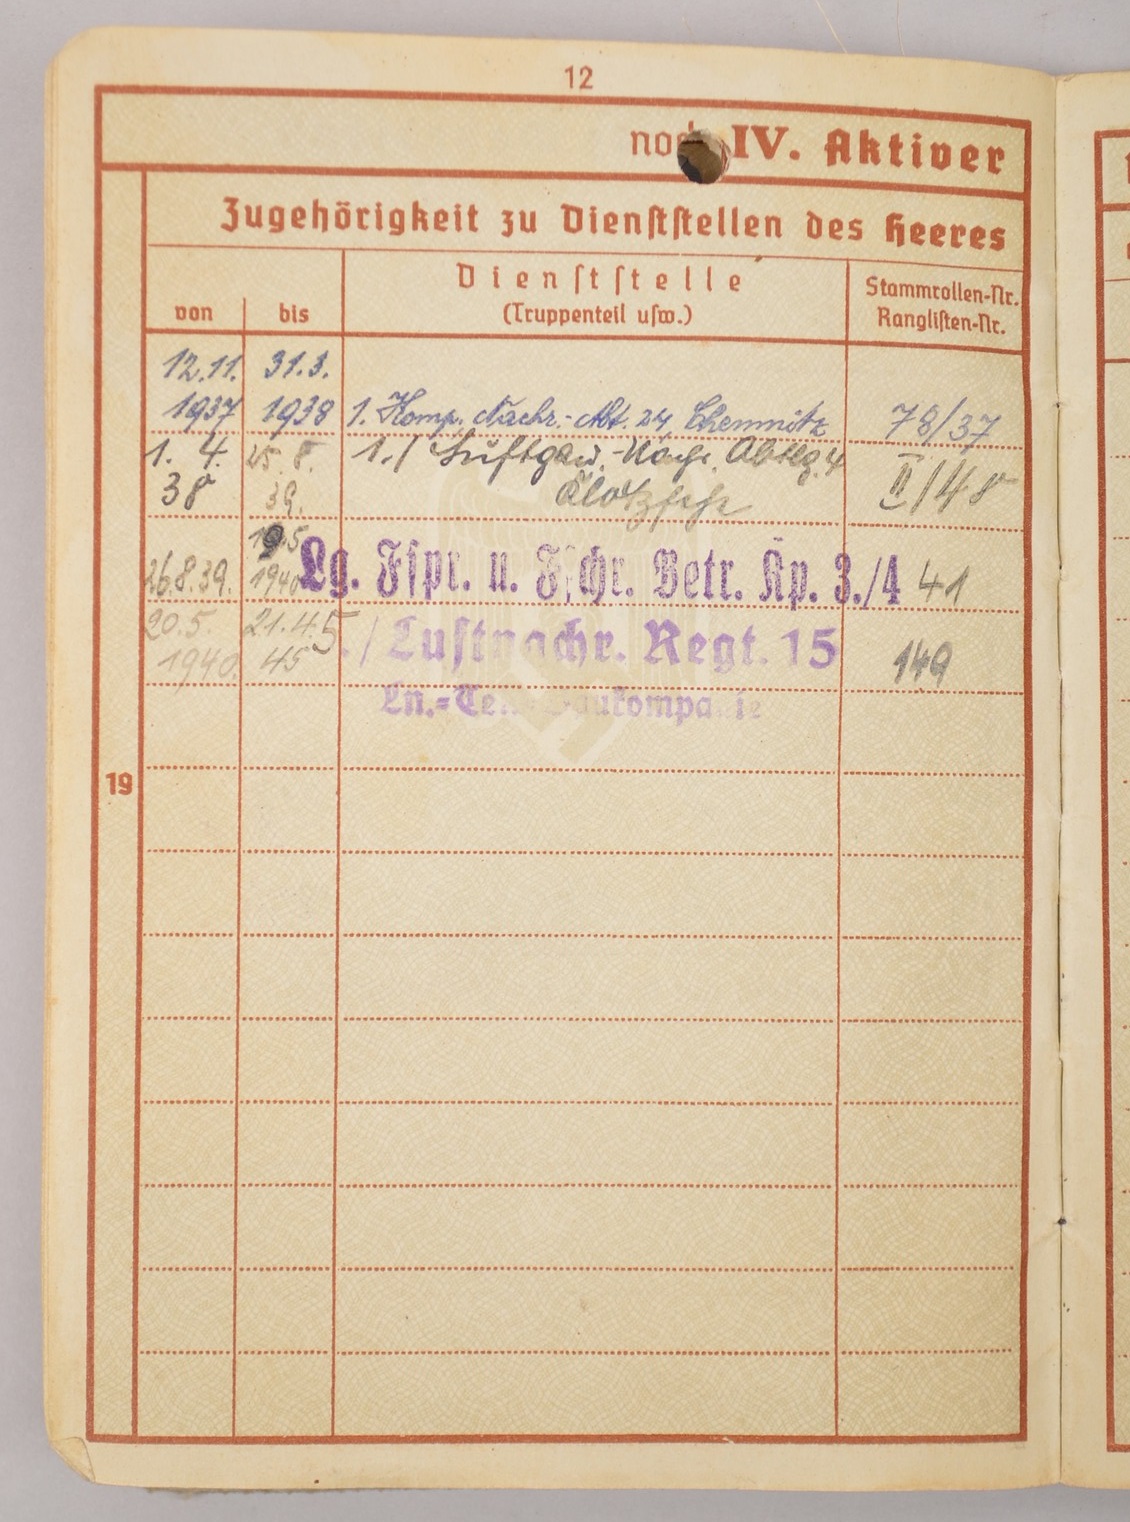 12
noch IV. Aktiver
Zugehörigkeit zu Dienststellen des Heeres
von bis
Dienststelle
(Truppenteil usw.)
Stammrollen-Nr.
Ranglisten-Nr.
12.11. 31.3.
1937 1938 1. Komp. Nachr.-Abt. 24 Chemnitz 78/37
1. 4. 25. 8. 1./ Luftgau-Nachr. Abtlg. 4
38 39. Klotzsche II/48
19.5
26.8.39. 1940 Lg. Fspr. u. Fschr. Betr. Kp. 3./4 41
20.5. 21.4. 5./Luftnachr. Regt. 15
1940. 45 149
Ln.=
19